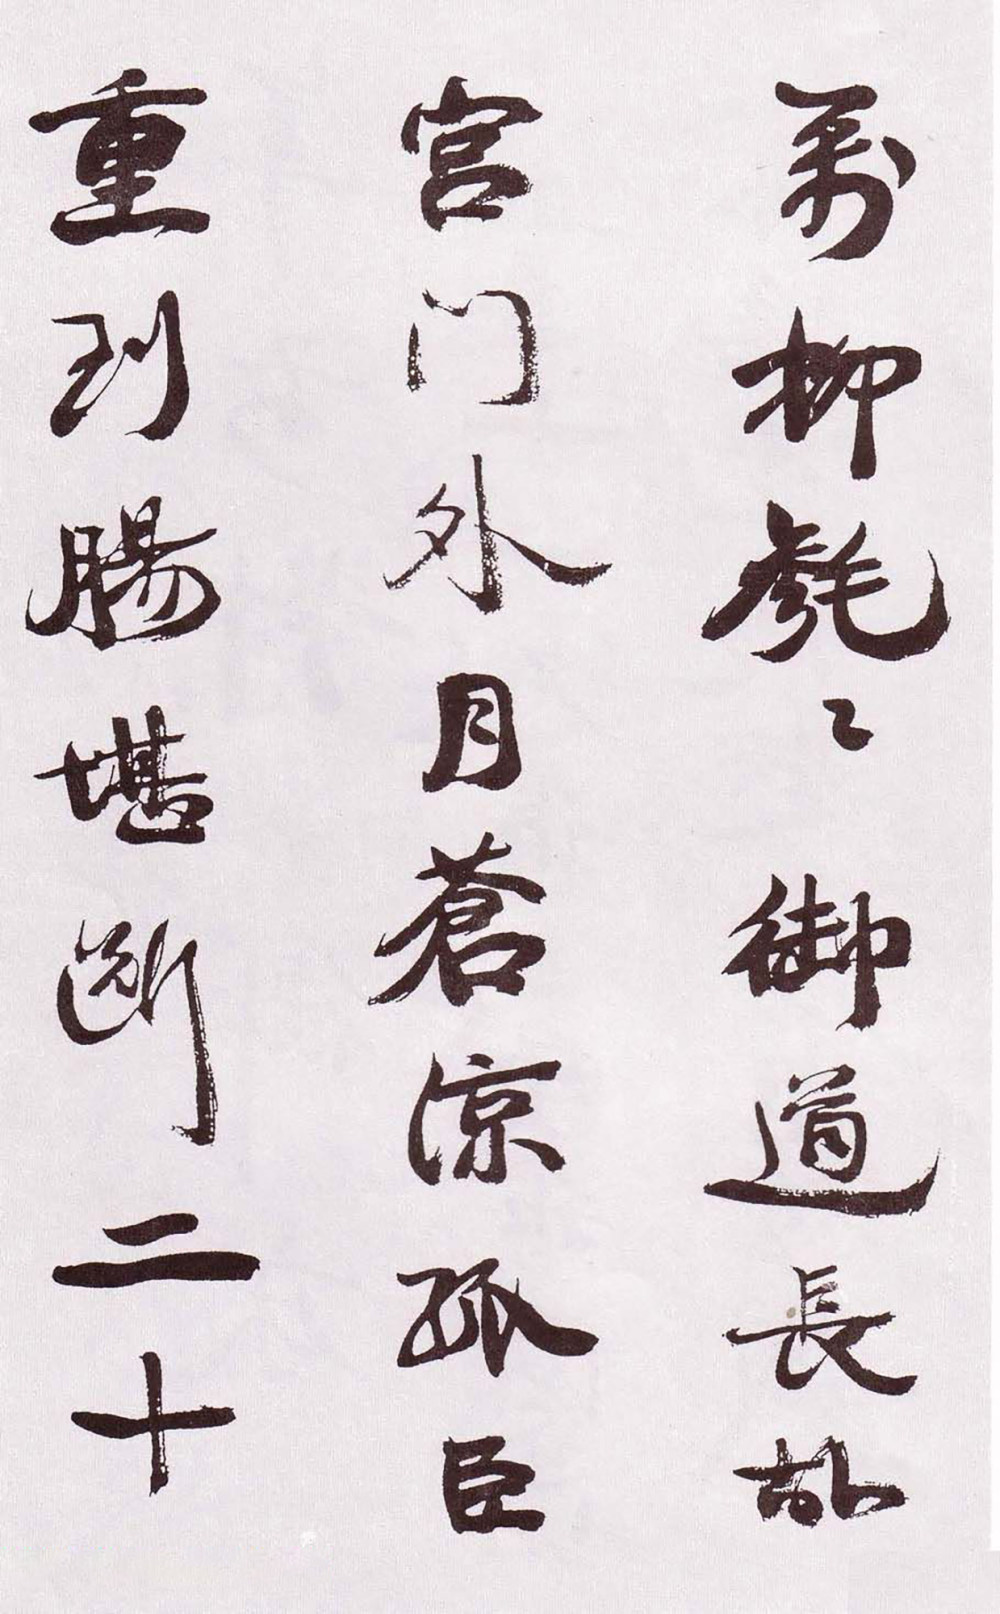 萬柳毿〻御道長故
宮門外月蒼涼孤臣
重到腸堪斷二十